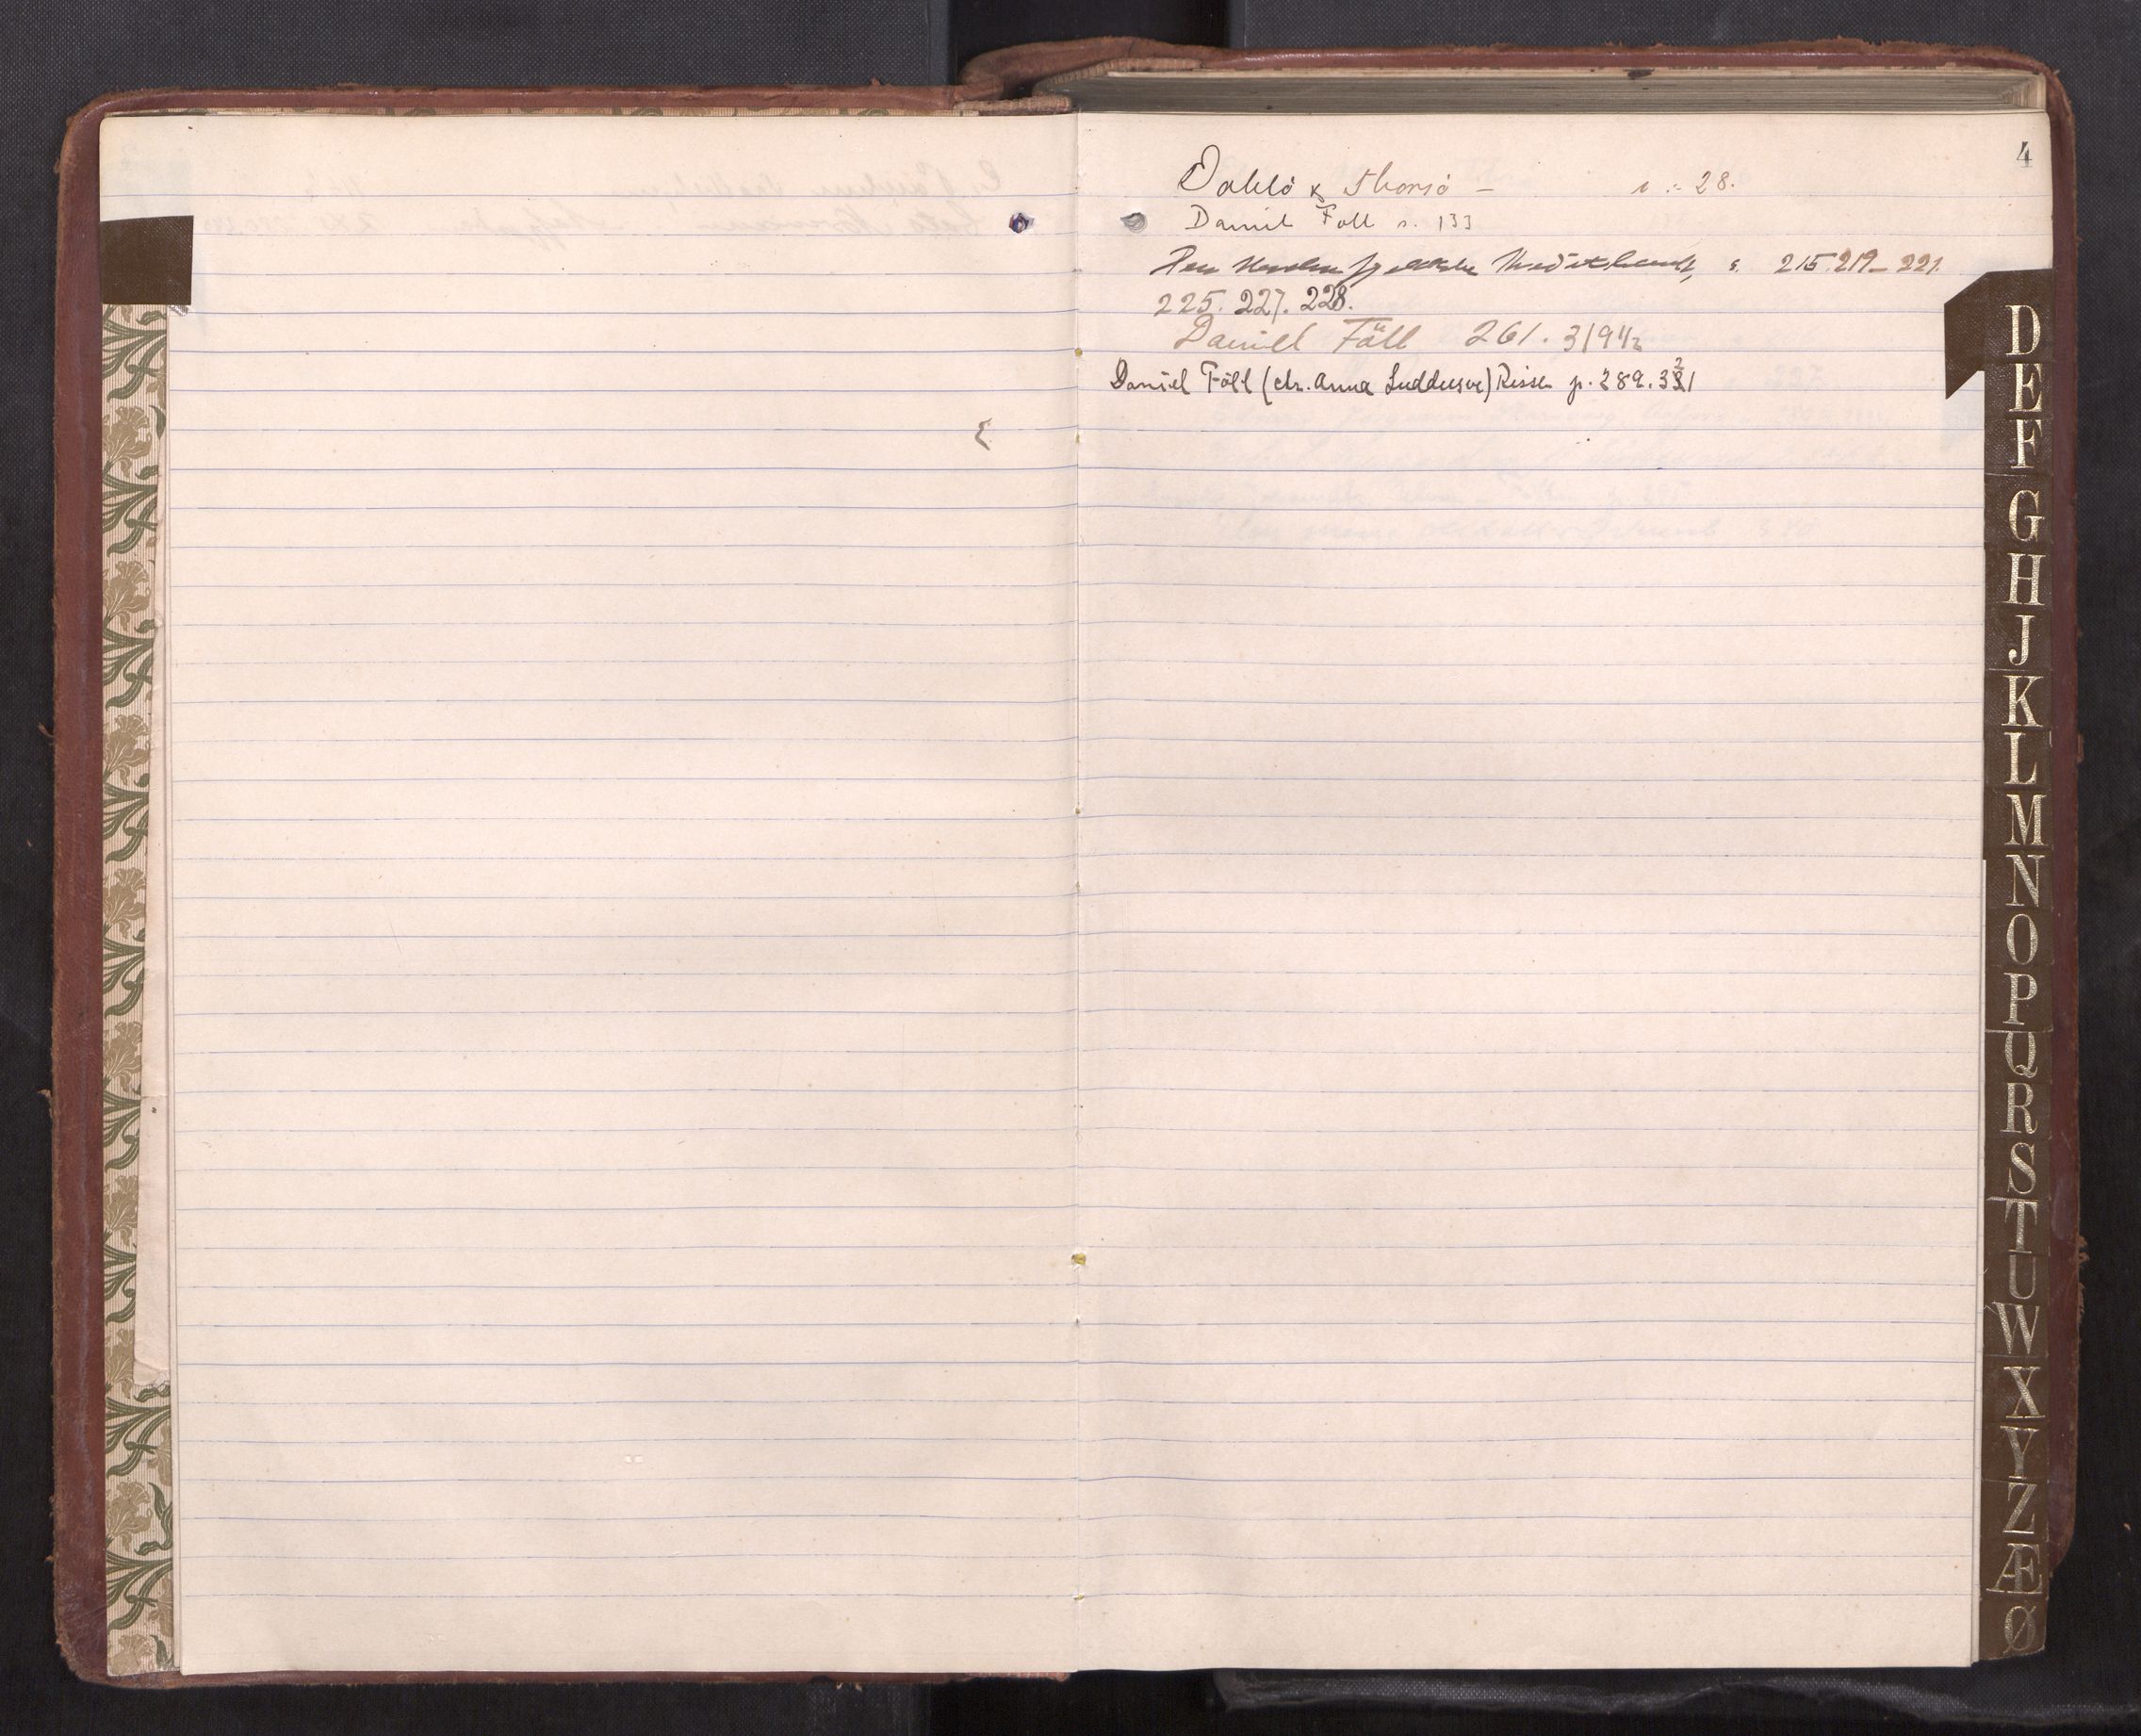 4
Dahlö & Thorsö - s. 28.
Daniel Foll s. 133
s. 215. 219- 221.
225. 227. 228.
Daniel Föll 261. 319 1/2
Daniel Föll (ctr. Anna Luddusve) Rissen p. 289. 321
D
E
F
G
H
J
K
L
M
N
O
P
Q
R
S
T
U
W
X
Y
Z
Æ
Ø